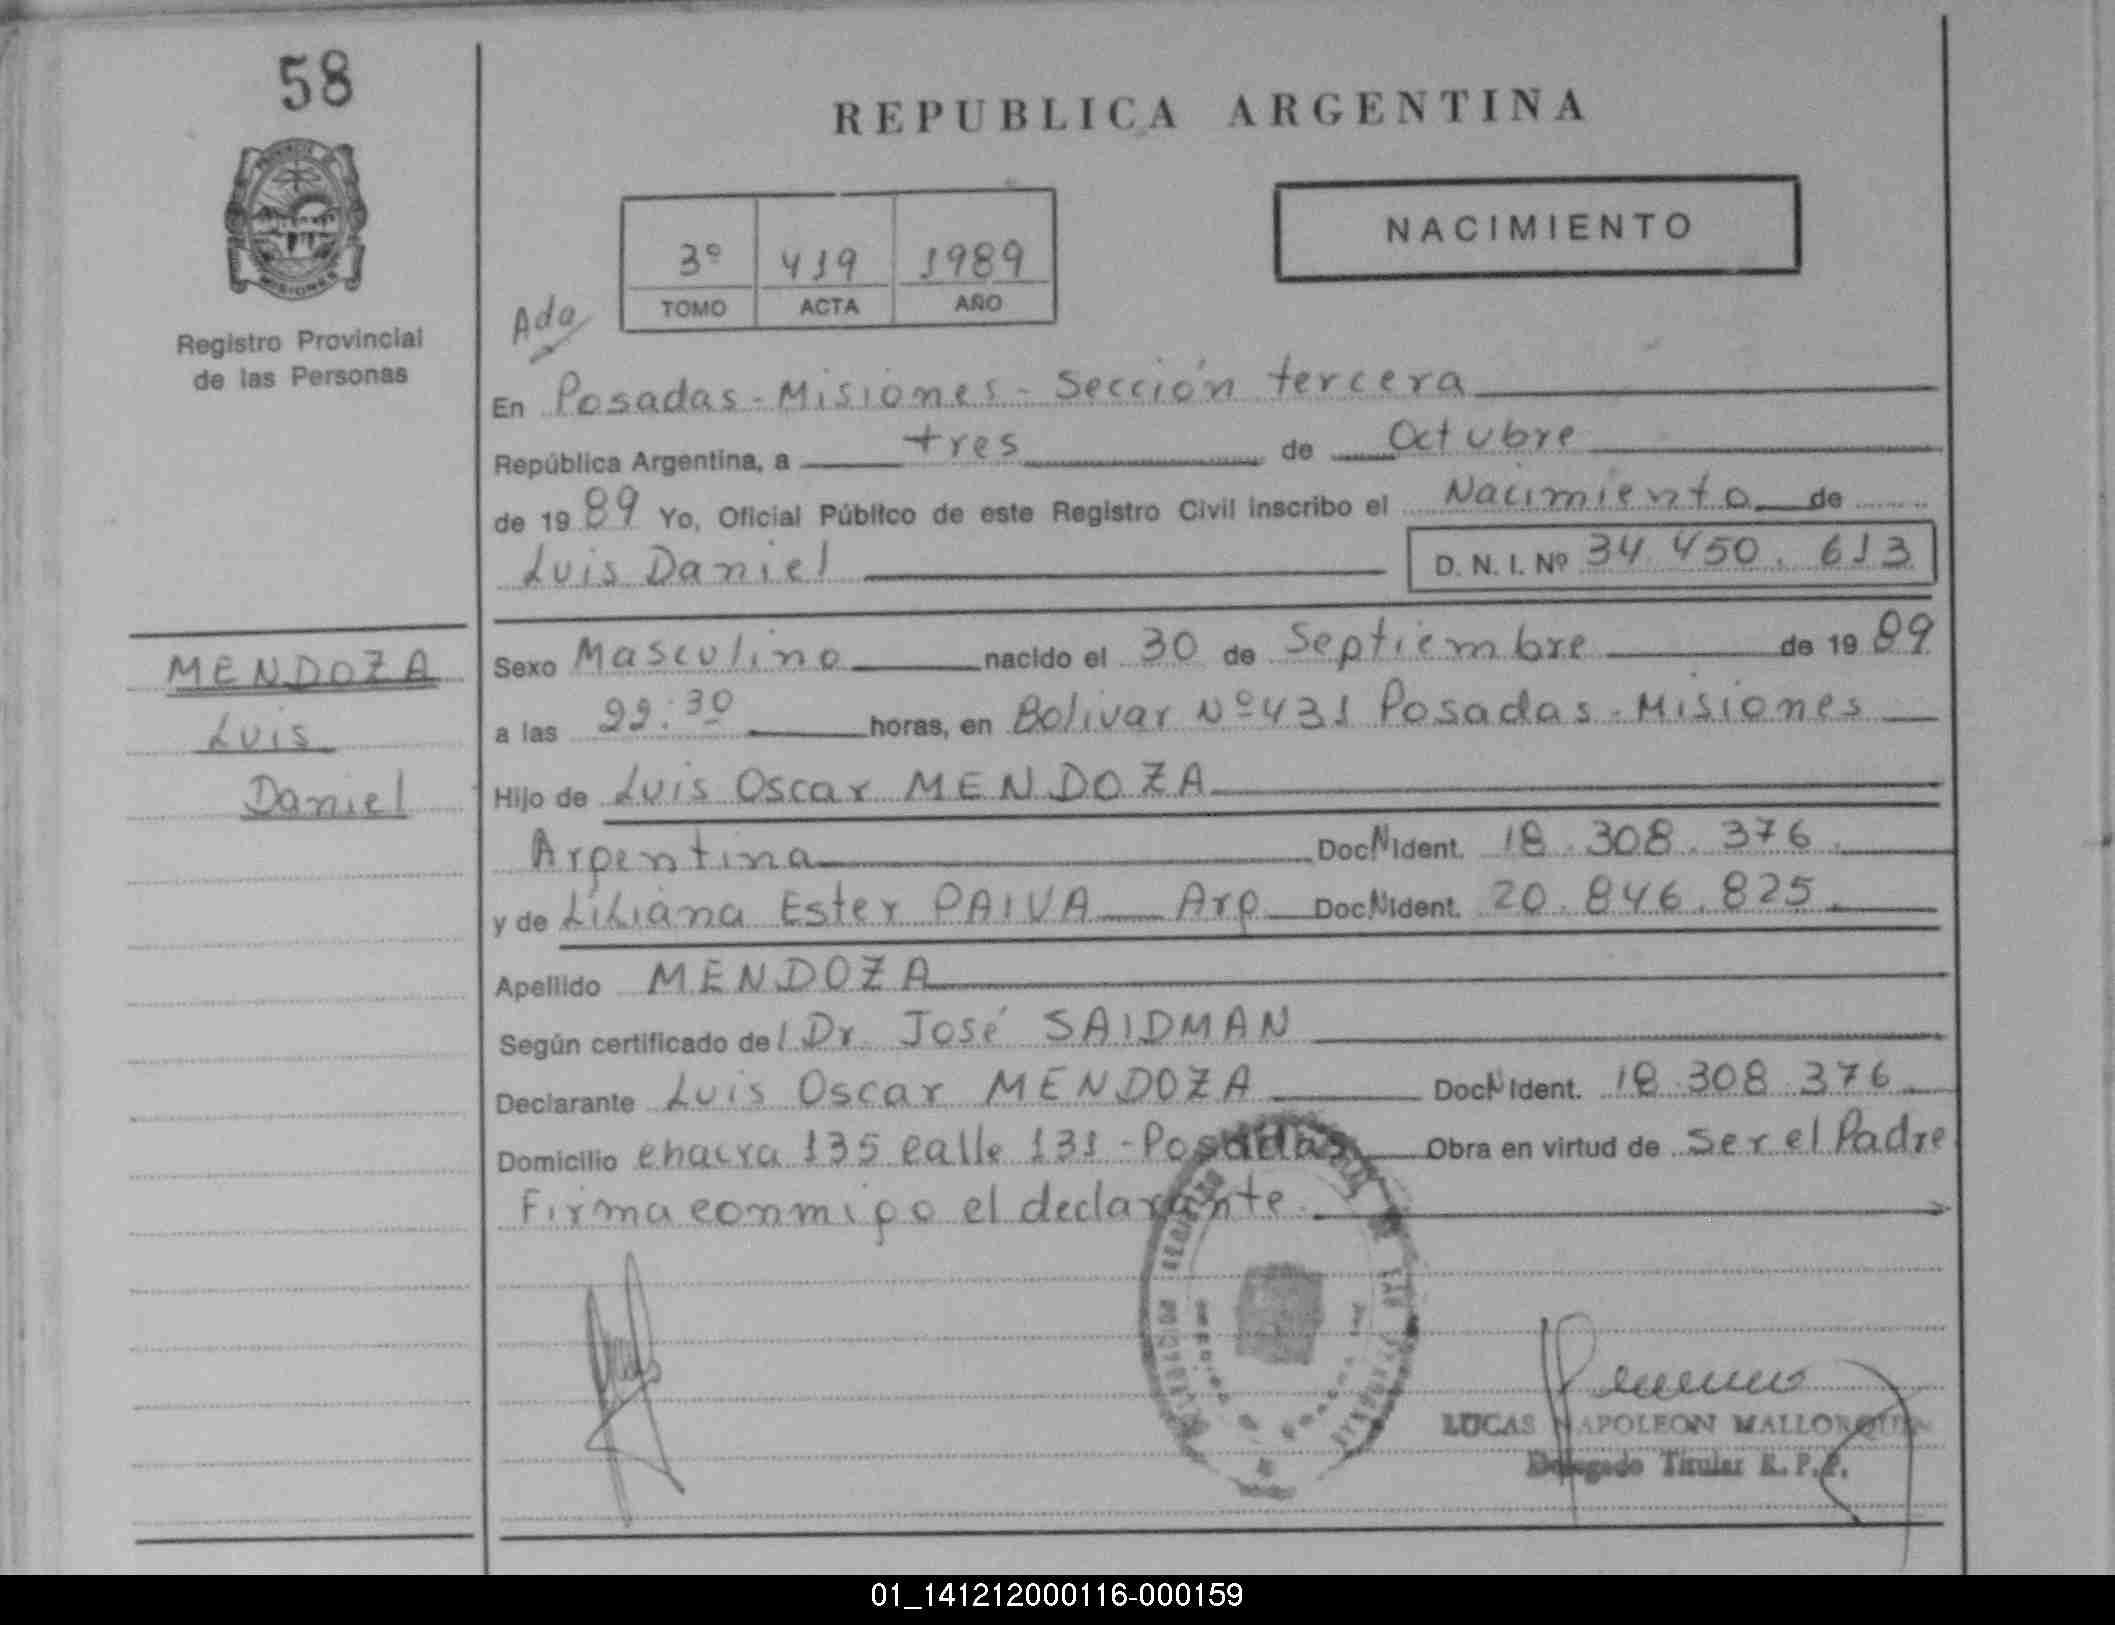 58
REPUBLICA ARGENTINA
NACIMIENTO
3º 419 1989
TOMO ACTA AÑO
Registro Provincial
de las Personas
Ada
En Posadas - Misiones - Sección tercera
República Argentina, a tres de Octubre
de 1989 Yo, Oficial Público de este Registro Civil inscribo el Nacimiento de
Luis Daniel D. N. I. Nº 34.450.613
MENDOZA
Luis
Daniel
Sexo Masculino nacido el 30 de Septiembre de 1989
a las 22:30 horas, en Bolivar Nº 431 Posadas - Misiones
Hijo de Luis Oscar MENDOZA
Argentina Doc N Ident. 18.308.376.
y de Liliana Ester PAIVA Arg Doc N Ident. 20.846.825.
Apellido MENDOZA
Según certificado del Dr. José SAIDMAN
Declarante Luis Oscar MENDOZA Doc N Ident. 18.308.376
Domicilio chacra 135 calle 131 - Posadas Obra en virtud de ser el Padre
Firma conmigo el declarante.
LUCAS NAPOLEON MALLORQUIN
Delegado Titular R. P. P.
01_141212000116-000159